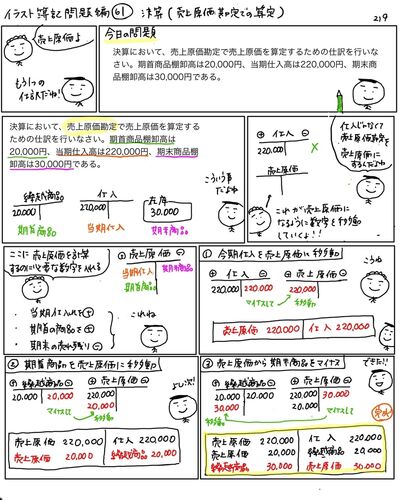 イラスト簿記 問題編 61 決算（売上原価勘定での算定）
219
売上原価よ
もう1つの
仕訳だね!
今日の問題
決算において、売上原価勘定で売上原価を算定するための仕訳を行いな
さい。期首商品棚卸高は20,000円、当期仕入高は220,000円、期末商
品棚卸高は30,000円である。
決算において、売上原価勘定で売上原価を算定する
ための仕訳を行いなさい。期首商品棚卸高は
20,000円、当期仕入高は220,000円、期末商品棚
卸高は30,000円である。
繰越商品
20,000
期首商品
仕入
220,000
当期仕入
在庫
30,000
期末商品
こういう事
だよね
⊕ 仕入 ⊖
220,000
×
売上原価
仕入じゃなくて
売上原価勘定を
売上原価に
するんだよね
これが売上原価に
なるように数字を移動
していくよ!!
ここに売上原価を計算
するのに必要な数字を入れる
⊕ 売上原価 ⊖
当期仕入
期首商品
期末商品
・当期仕入れを⊕
・期首の商品を⊕
・期末の売れ残り⊖
これね
① 今期仕入を売上原価に移動
⊕ 仕入 ⊖
220,000
220,000
⊕ 売上原価 ⊖
220,000
マイナスして
移動
売上原価 220,000
仕入 220,000
② 期首商品を売上原価に移動
⊕ 繰越商品 ⊖
20,000
20,000
⊕ 売上原価 ⊖
220,000
20,000
マイナスして
移動
売上原価 220,000
仕入 220,000
売上原価 20,000
繰越商品 20,000
③ 売上原価から期末商品をマイナス
できた!!
⊕ 繰越商品 ⊖
20,000
20,000
30,000
⊕ 売上原価 ⊖
220,000
30,000
20,000
移動
マイナスして
完成
売上原価 220,000
仕入 220,000
売上原価 20,000
繰越商品 20,000
繰越商品 30,000
売上原価 30,000